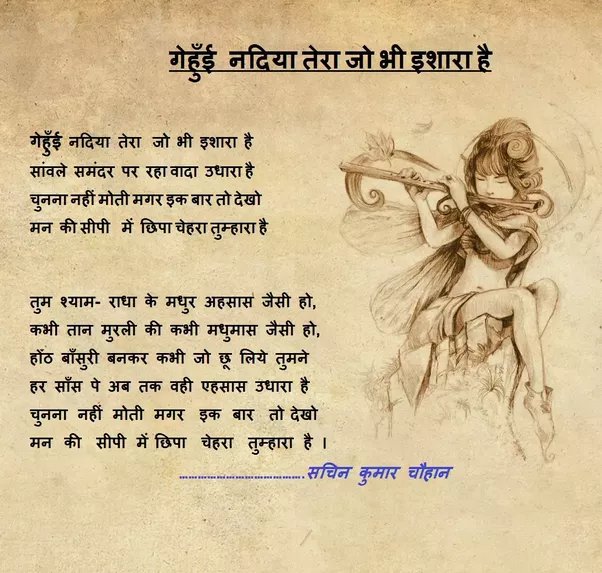 गेहुँई नदिया तेरा जो भी इशारा है
गेहुँई नदिया तेरा जो भी इशारा है
सांवले समंदर पर रहा वादा उधारा है
चुनना नहीं मोती मगर इक बार तो देखो
मन की सीपी में छिपा चेहरा तुम्हारा है
तुम श्याम- राधा के मधुर अहसास जैसी हो,
कभी तान मुरली की कभी मधुमास जैसी हो,
होंठ बाँसुरी बनकर कभी जो छू लिये तुमने
हर साँस पे अब तक वही एहसास उधारा है
चुनना नहीं मोती मगर इक बार तो देखो
मन की सीपी में छिपा चेहरा तुम्हारा है ।
........................................सचिन कुमार चौहान